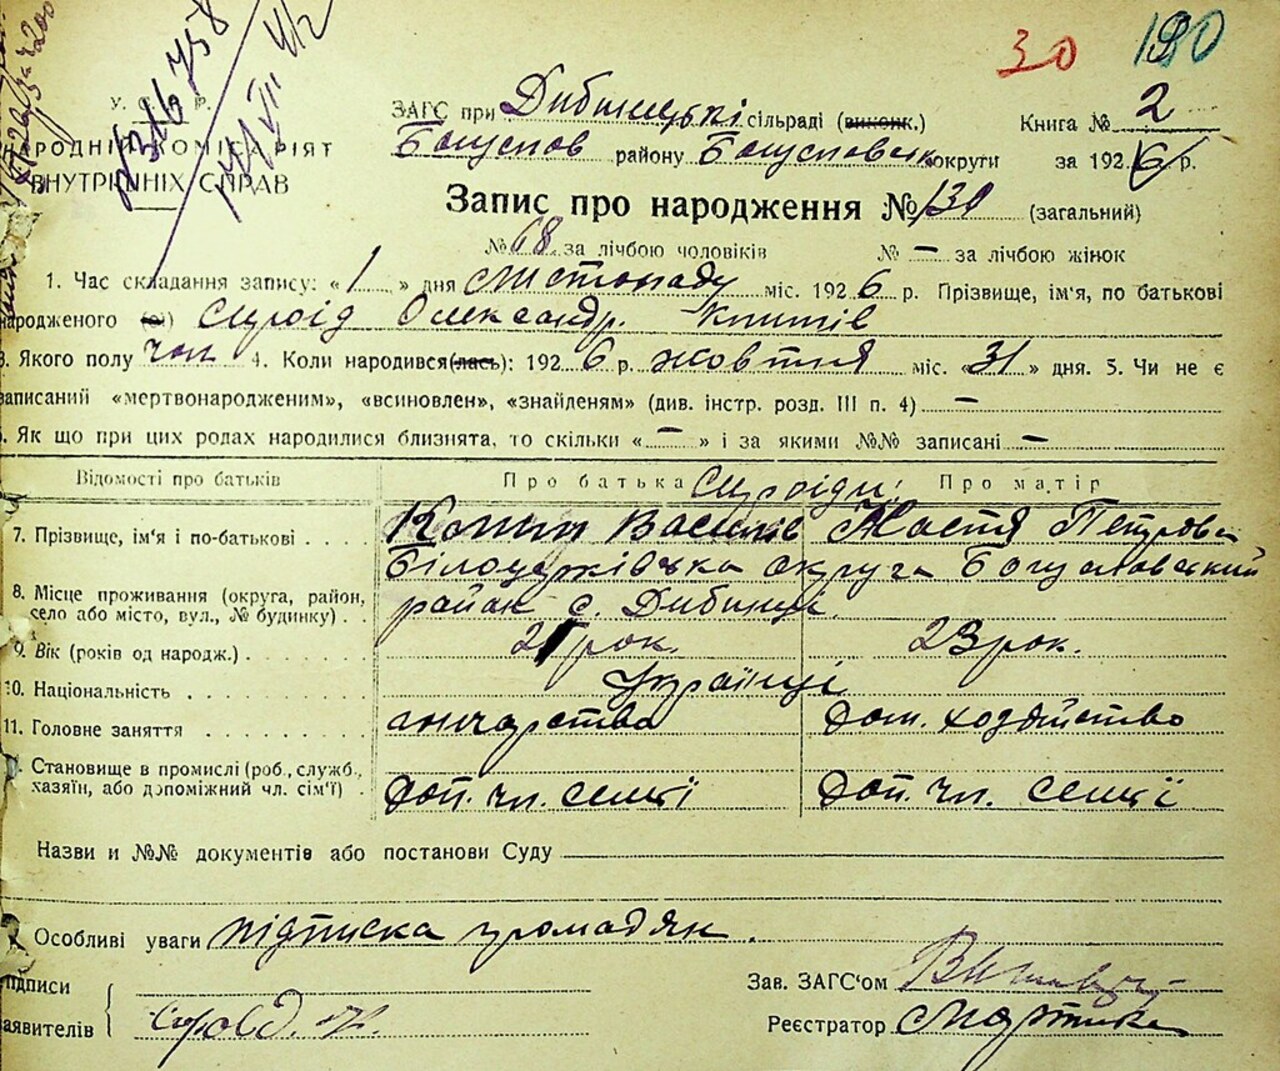 30 190
У. С. Р. ЗАГС при Дибинецькі сільраді (виконк.) Книга № 2
НАРОДНІЙ КОМІСАРІЯТ Богуслав району Богуславськ округи за 1926 р.
ВНУТРІШНІХ СПРАВ
Запис про народження № 130 (загальний)
№ 68 за лічбою чоловіків № — за лічбою жінок
1. Час складання запису: «1» дня листопаду міс. 1926 р. Прізвище, ім'я, по батькові
народженого (ої) Сироід Олександр.
3. Якого полу чол 4. Коли народився(лась): 1926 р. жовтня міс. «31» дня. 5. Чи не є
записаний «мертвонародженим», «всиновлен», «знайденям» (див. інстр. розд. III п. 4) —
6. Як що при цих родах народилися близнята, то скільки «—» і за якими №№ записані —
Відомості про батьків Про батька Сироіди: Про матір
7. Прізвище, ім'я і по-батькові . . . . Василів Настя Петрова
Білоцерківська округа Богуславський
8. Місце проживання (округа, район, село або місто, вул., № будинку) . . район с. Дибинці.
9. Вік (років од народж.) . . . . . . . 21 рок. 23 рок.
10. Національність . . . . . . . . . Українці
11. Головне заняття . . . . . . . . ганчарства Дом. хозяйство
Становище в промислі (роб., служб., хазяїн, або допоміжний чл. сім'ї) . Доп. чл. семкі Доп. чл. семкі
Назви и №№ документів або постанови Суду
Особливі уваги підписка громадян.
Підписи Зав. ЗАГС'ом
заявителів Реєстратор